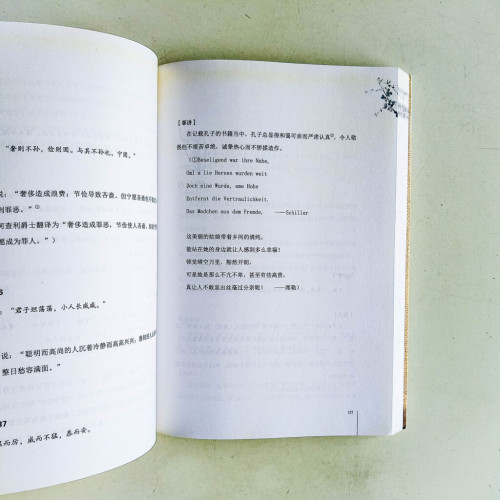 “奢则不孙，俭则固。与其不孙也，宁固。”
说：“奢侈造成浪费；节俭导致吝啬。但宁愿
利罪恶。”①
何查利爵士翻译为“奢侈造成罪恶；节俭使人吝啬。
愿成为罪人。”）
6
“君子坦荡荡，小人长戚戚。”
说：“聪明而高尚的人沉着冷静而高高兴兴；
整日愁容满面。”
37
而厉，威而不猛，恭而安。
【辜讲】
在记载孔子的书籍当中，孔子总是得和蔼可亲而严肃认真①，令人敬
畏但不艰苦卓绝，诚挚热心而不矫揉造作。
（①Beseligend war ihre Nahe,
Und a lle Herzen wurden weit
Doch eine Wurde, eme Hohe
Entfernt die Vertraulichkeit.
Das Madchen aus dem Fremde, ——Schiller
这美丽的姑娘带着乡间的清纯，
能站在她的身边就让人感到多么幸福！
领受晴空万里，豁然开朗，
可是她是那么不亢不卑，甚至有结高贵，
真让人不敢显出丝毫过分亲昵！ ——席勒）